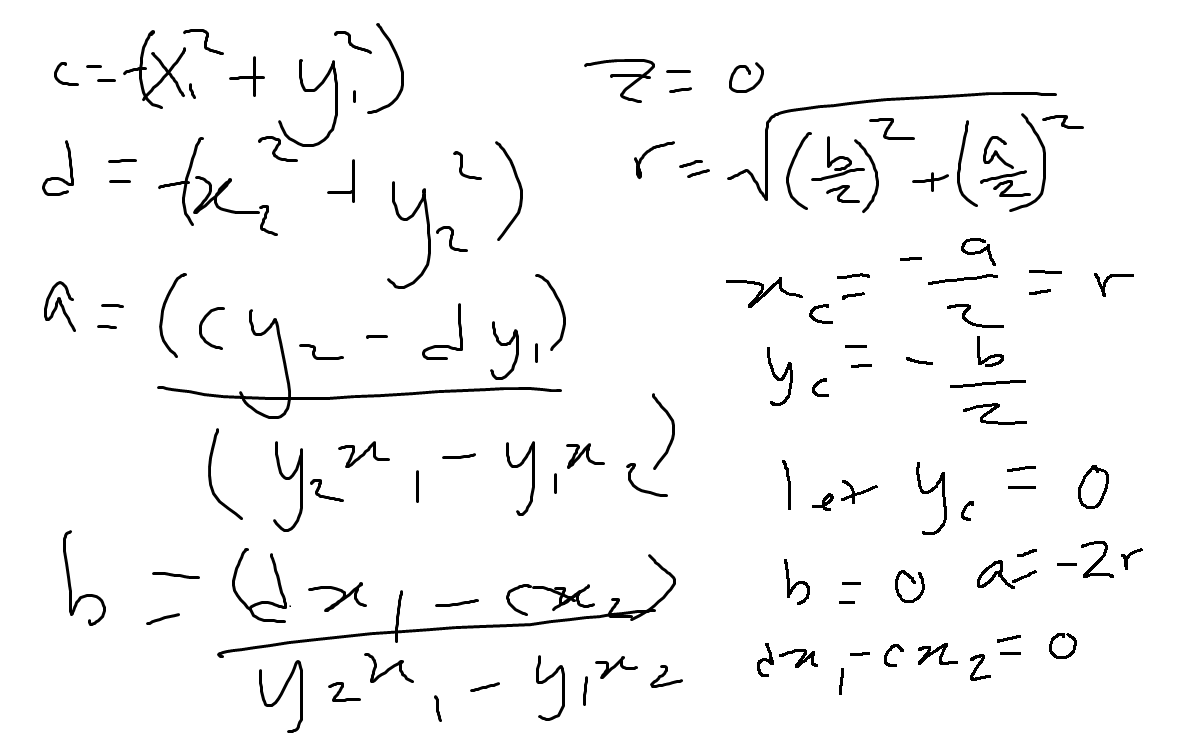 c = -(x₁² + y₁²)
d = -(x₂² + y₂²)
a = (cy₂ - dy₁) / (y₂x₁ - y₁x₂)
b = (dx₁ - cx₂) / y₂x₁ - y₁x₂
z = 0
r = √((b/2)² + (a/2)²)
x_c = -a/2 = r
y_c = -b/2
let y_c = 0
b = 0 a = -2r
dx₁ - cx₂ = 0